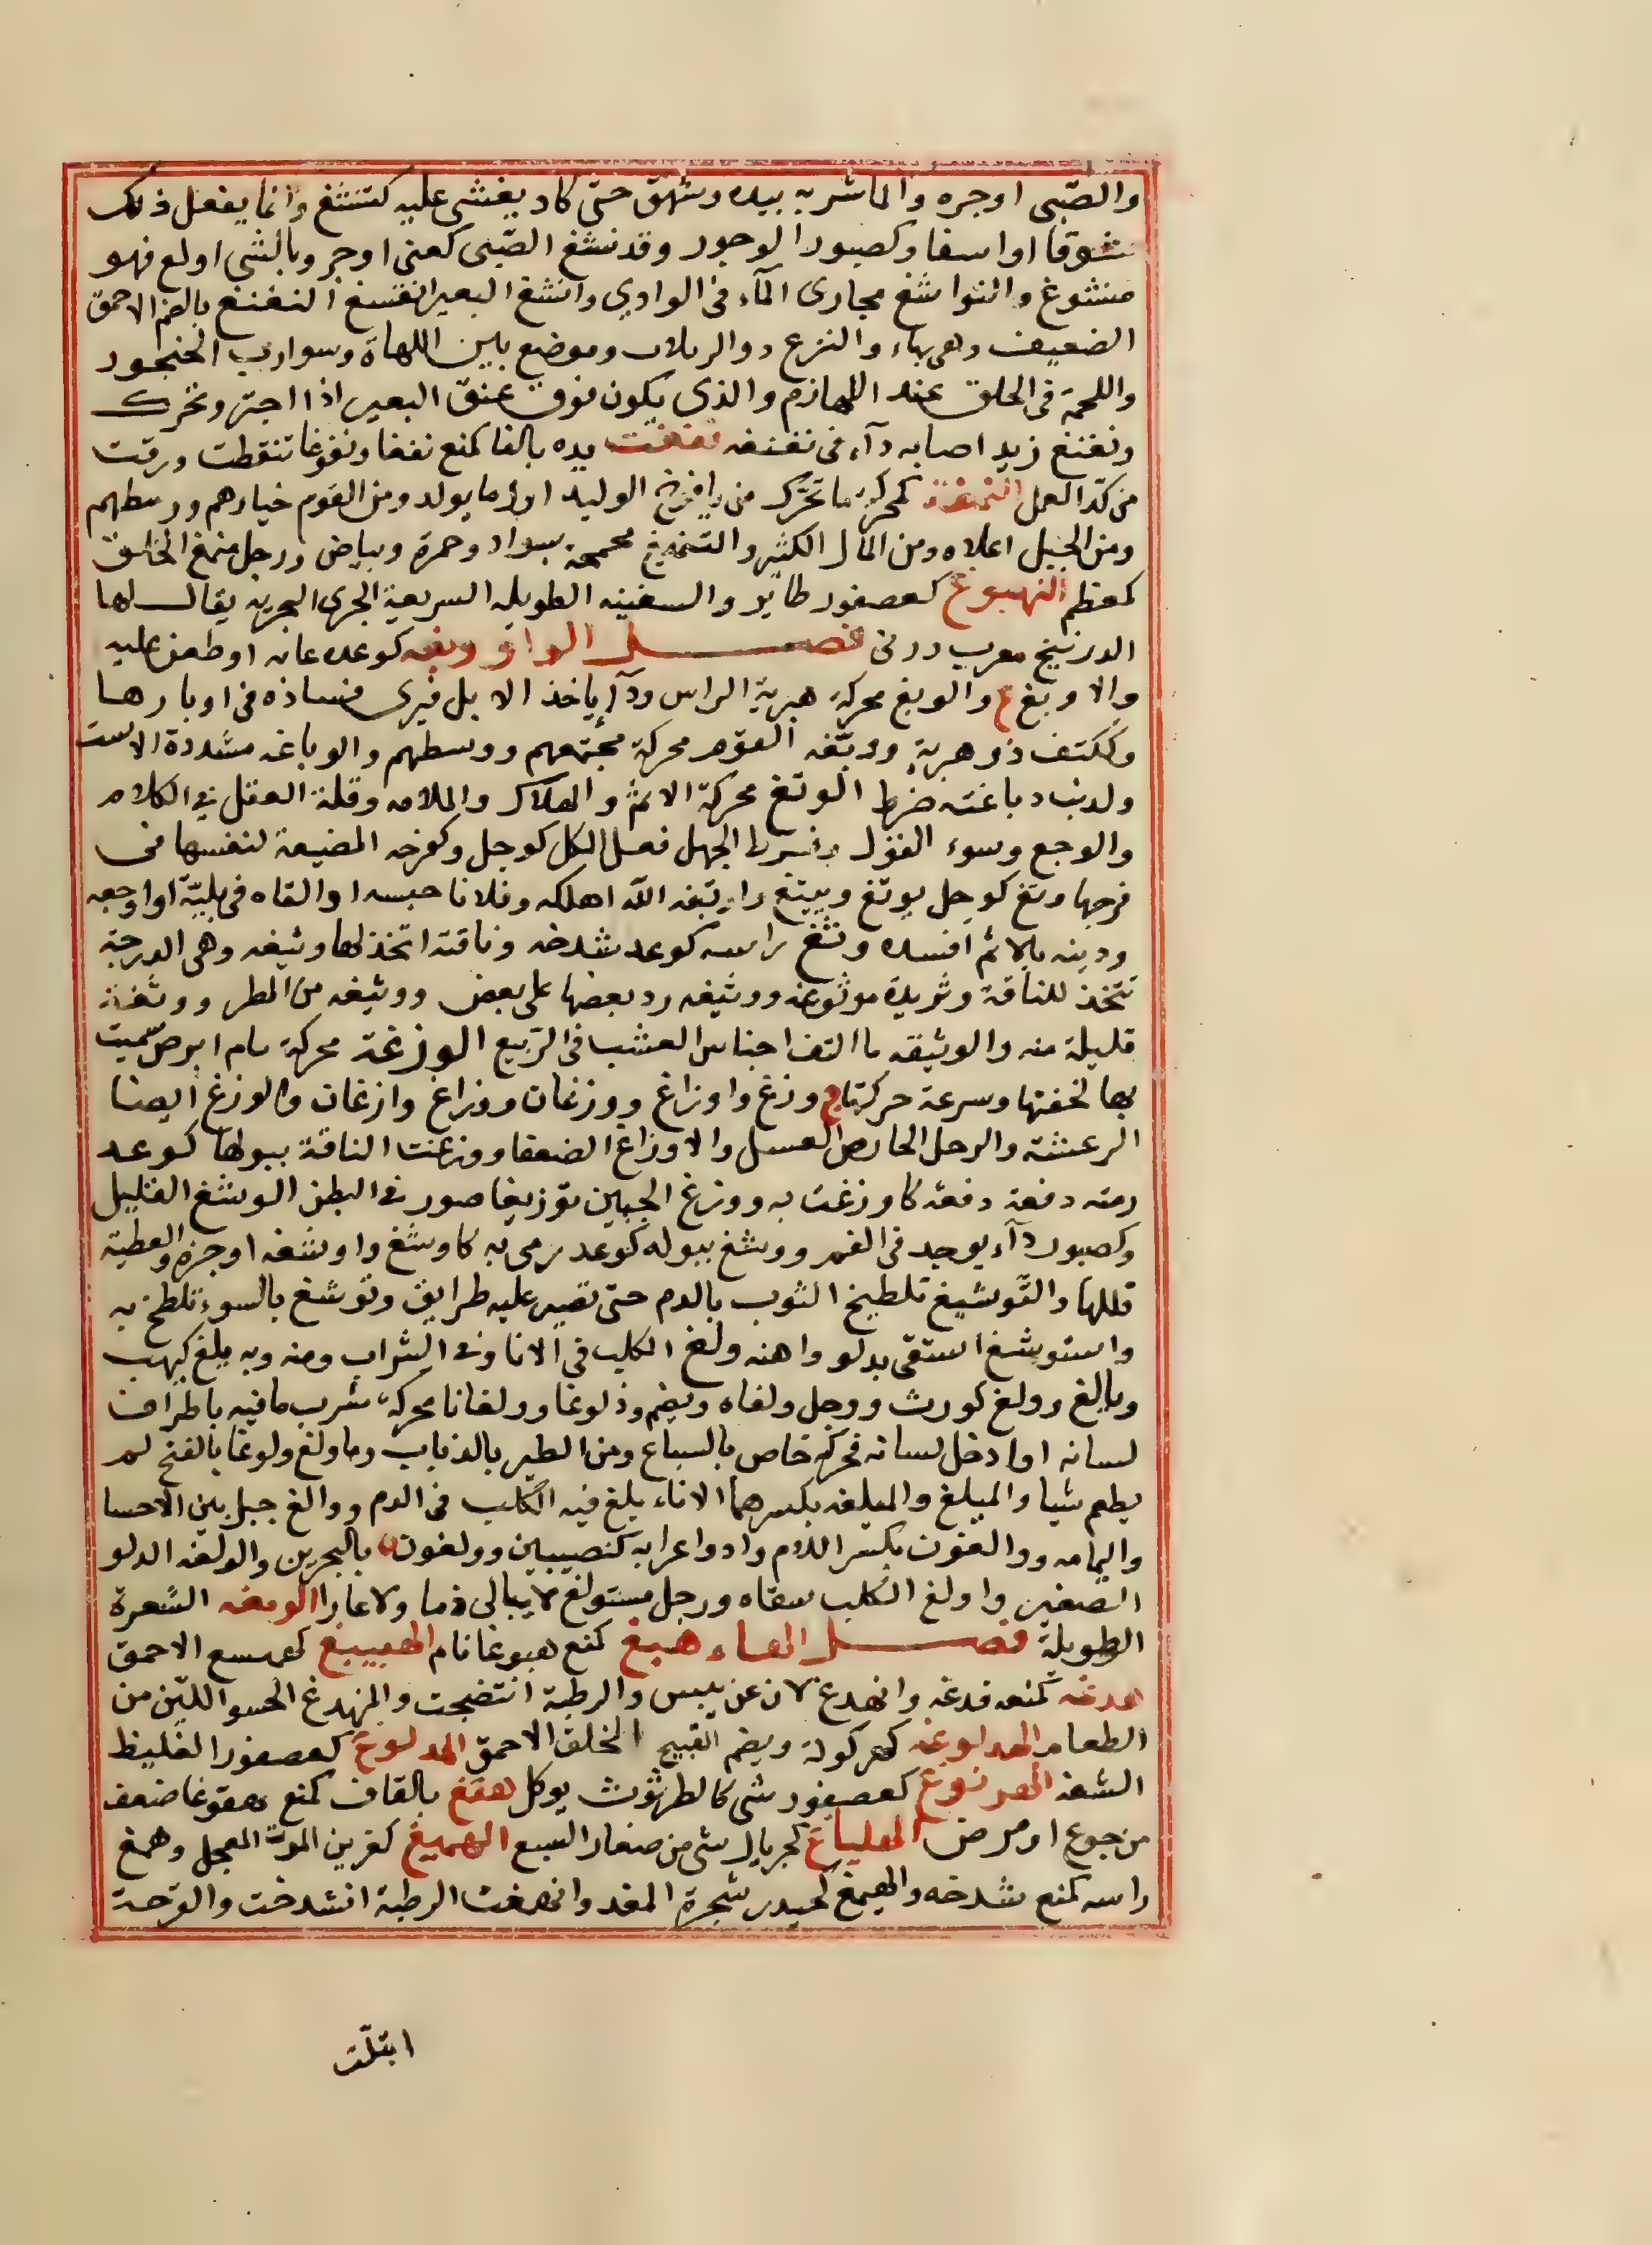 والصّبى اوجره والماشربه بيده وشهق حتى كاد يغشى عليه كتنشغ وانما يفعل ذلك
شوقا اواسفا وكصبور الوجور وقد نشغ الصّبى كعنى اوجر وبالشى اولع فهو
منشوغ والنواشغ مجارى المآء فى الوادي وانشغ البعير انفسغ النغنغ بالضم الاحمق
الضعيف وهى بهاء والنزع ذوالربلات وموضع بين اللهاة وسوارب الحنجور
واللحمة فى الحلق عند اللهازم والذى يكون فوق عنق البعير اذا اجتر وتحرك
ونغنغ زيد اصابه دآء فى نغنغه نفغت يده بالفا كمنع نفغا ونفوغا تنقطت ورقت
من كدّ العمل النمغة محركة ما تحرّك من يافوخ الوليد اول ما يولد ومن القوم خيارهم ووسطهم
ومن الجبل اعلاه ومن المال الكثير والتنميغ مجمجة بسواد وحمرة وبياض ورجل منمغ الخلق
كمعظم النهبوغ كعصفور طاير والسفينه الطويله السريعة الجرى البحريه يقال لها
الدونيج معرب دونى فصل الواو وبغه كوعده عابه اوطعن عليه
والاوبغ ع والوبغ محركة هبرية الراس ودآء ياخذ الابل فيرى فساده فى اوبارها
وككتف ذوهبرية ووبّغه القوم محركة مجتمعهم ووسطهم والوباغه مشددة الاست
وكذبت وباغته ضرط الوتغ محركة الاثم والهلاك والملامه وقلة العقل فى الكلام
والوجع وسوء القول وفرط الجهل فعل الكل كوجل وكفرحه المضيعة لنفسها فى
فرجها وتغ كوجل يوتغ وييتغ واوتغه الله اهلكه وفلانا حبسه او القاه فى بليّة اواوجعه
ودينه بالاثم افسده وثغ راسه كوعد شدخه وناقته اتخذ لها وثيغه وهى الدرجة
تتخذ للناقة وثريدة موثوغه ووثيغه رد بعضها على بعض ووثيغه من المطر ووثغة
قليلة منه والوثيغه ما التف اجناس العشب فى الرّبيع الوزغة محركة سام ابرص سميت
بها لخفتها وسرعة حركتها ج وزغ واوزاغ ووزغان ووزاغ وازغان والوزغ ايضا
الرعشة والرجل الحارض الفسل والاوزاغ الضعفا ووزغت الناقة ببولها كوعد
رمته دفعة دفعة كاوزغت به ووزغ الجنين توزيغا صور فى البطن الوشغ القليل
وكصبور دآء يوجد فى الفم ووشغ ببوله كوعد رمى به كاوشغ واوشغه اوجزه والعطية
قللها والتّوشيغ تلطيخ الثوب بالدم حتى تصير عليه طرايق وتوشغ بالسوء تلطخ به
واستوشغ استقى بدلو واهنه ولغ الكلب فى الانا وفى الشراب ومنه وبه يلغ كيهب
ويالغ وولغ كورث ووجل ولغاه ويضم وذلوغا وولغانا محركة شرب مافيه باطراف
لسانه اوادخل لسانه فحركه خاص بالسباع ومن الطير بالذباب وماولغ ولوغا بالفتح لم
يطعم شيا والميلغ والميلغه بكسرهما الاناء يلغ فيه الكلب فى الدم ووالغ جبل بين الاحسا
واليمامه ووالغون بكسر اللام واد واعرابه كنصيبين وولغون ة بالبحرين والولغه الدلو
الصغير واولغ الكلب سقاه ورجل مستولغ لايبالى ذما ولاعارا الومغه الشعرة
الطويلة فصل الهاء هبغ كمنع هبوغا نام الهبيبغ كهميسع الاحمق
هدغه كمنعه فدغه وانهدغ لان عن يبس والرطبة انتضجت والمنهدغ الحسو الليّن من
الطعام الهدلوغه كهركولة ويضم القبيح الخلق الاحمق الهدلوغ كعصفور الغليظ
الشفه الهرنوغ كعصفور شى كالطرثوث يوكل هقغ بالقاف كمنع هقوغا ضعف
من جوع اومرض الهلياغ كجريال شى من صغار السبع الهميغ كغرين الموت المعجل وهمغ
راسه كمنع شدخه والهيمغ كحيدر شجرة المغد وانهمغت الرطبة انشدخت والقرحة
ابتلّت